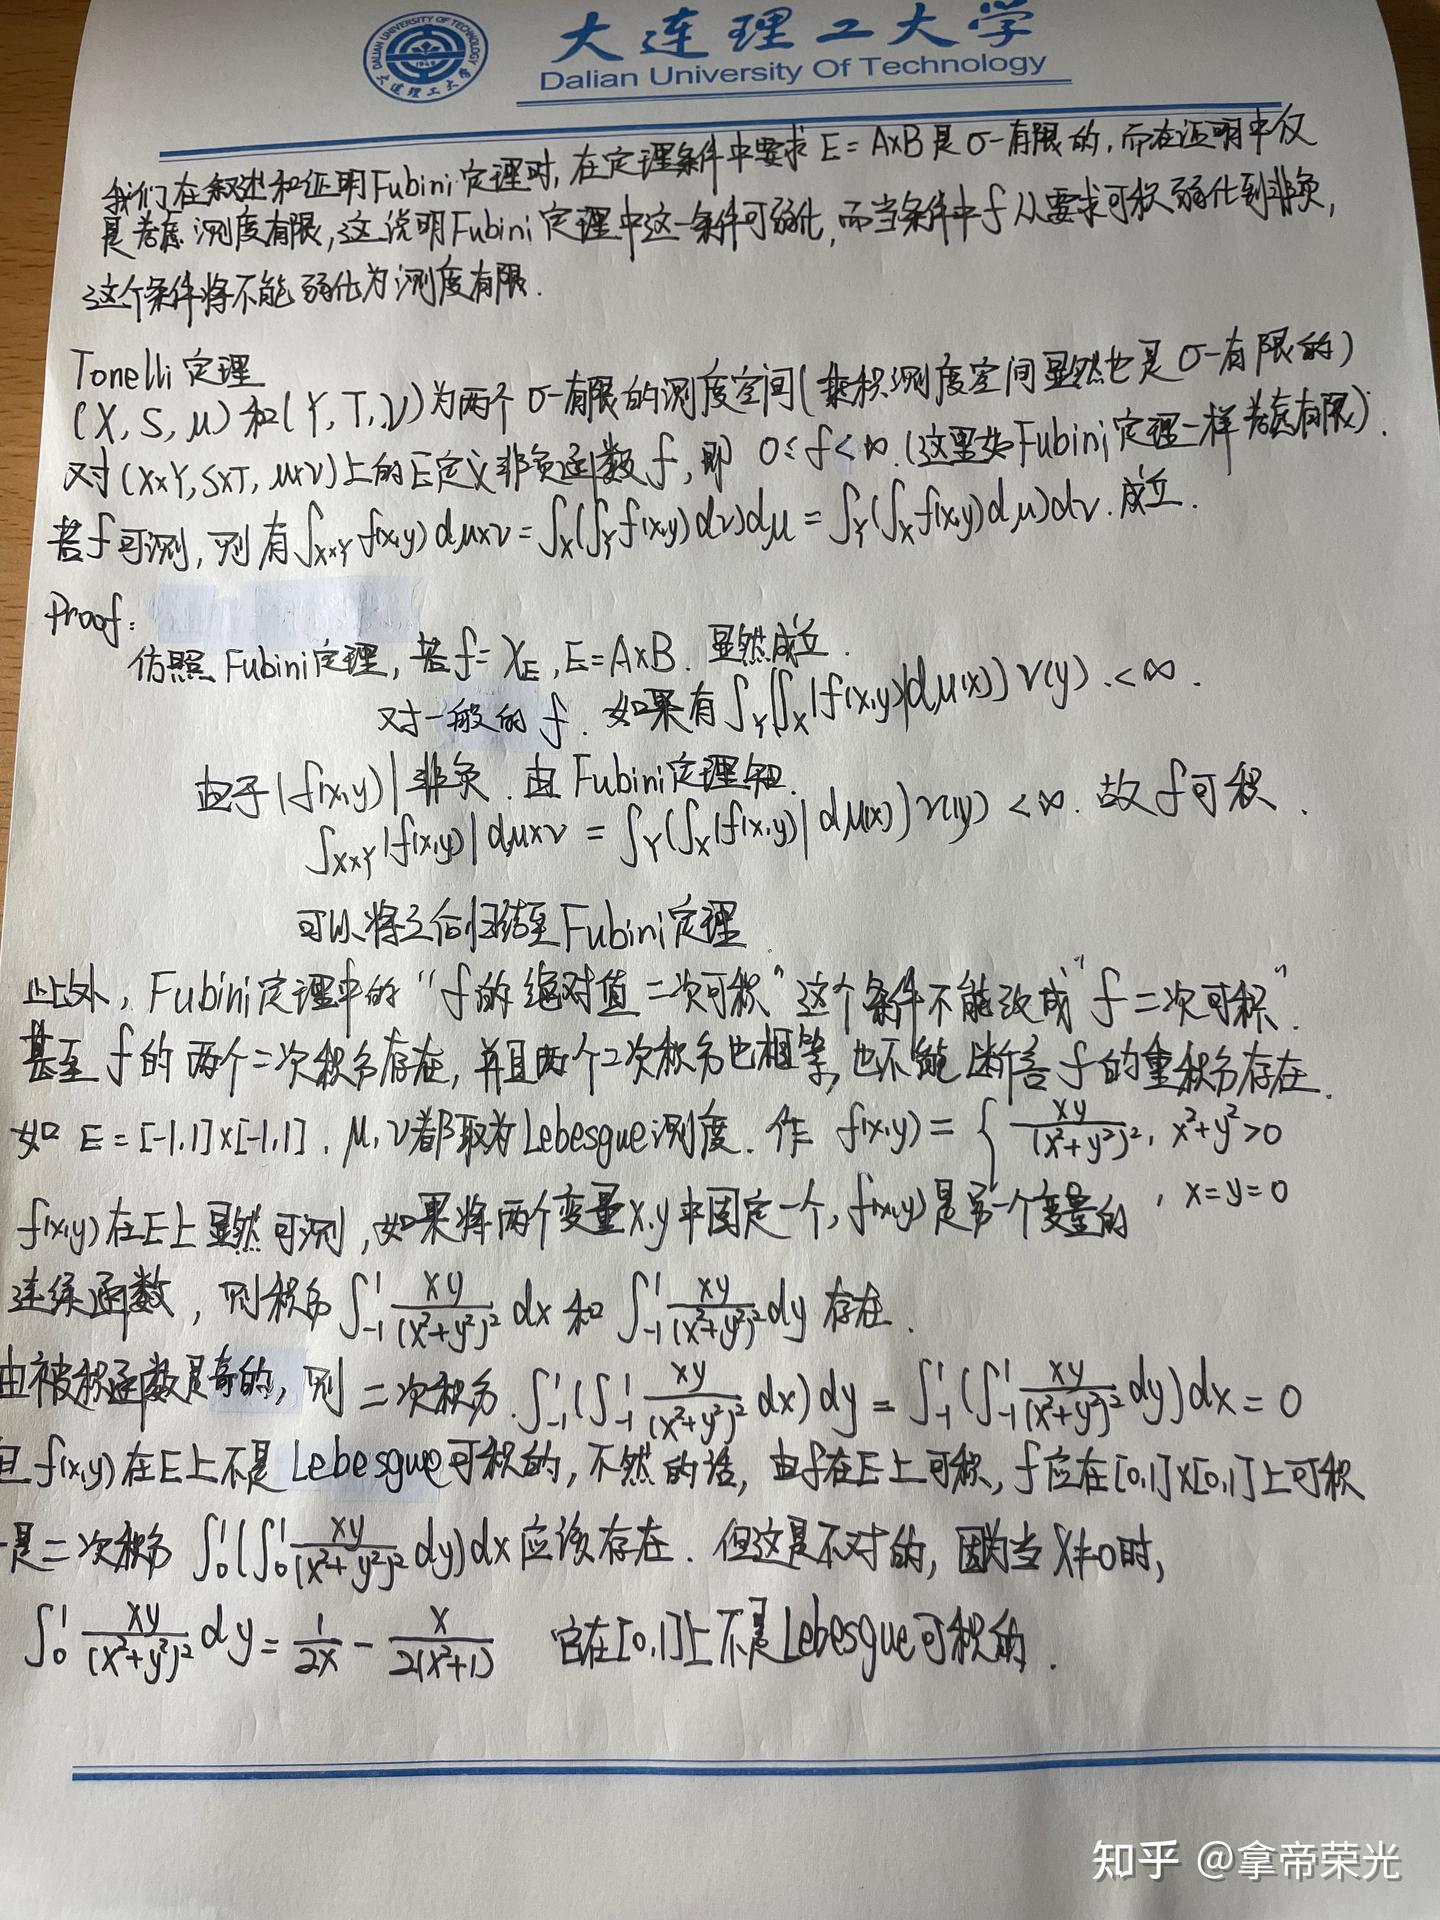 DALIAN UNIVERSITY OF TECHNOLOGY
1949
大连理工大学
大连理工大学
Dalian University Of Technology
我们在叙述和证明Fubini定理时,在定理条件中要求 E=A×B是σ-有限的,而在证明中仅
是考虑测度有限,这说明Fubini定理中这一条件可弱化,而当条件中f从要求可积弱化到非负,
这个条件将不能弱化为测度有限.
Tonelli定理
(X,S,μ)和(Y,T,ν)为两个σ-有限的测度空间(乘积测度空间显然也是σ-有限的)
对(X×Y,S×T,μ×ν)上的E定义非负函数f,即 0≤f<∞.(这里如Fubini定理一样考虑有限).
若f可测,则有∫_{X×Y} f(x,y)dμ×ν=∫_X(∫_Y f(x,y)dν)dμ=∫_Y(∫_X f(x,y)dμ)dν.成立.
Proof:
仿照Fubini定理,若f=χ_E,E=A×B.显然成立.
对一般的f.如果有∫_Y(∫_X|f(x,y)|dμ(x))ν(y).<∞.
由于|f(x,y)|非负.由Fubini定理知.
∫_{X×Y}|f(x,y)|dμ×ν=∫_Y(∫_X|f(x,y)|dμ(x))ν(y)<∞.故f可积.
可以将之后归结至Fubini定理.
此外,Fubini定理中的“f的绝对值二次可积”这个条件不能改成“f二次可积”.
甚至f的两个二次积分存在,并且两个二次积分也相等,也不能断言f的重积分存在.
如 E=[-1,1]×[-1,1].μ,ν都取为Lebesgue测度.作 f(x,y)={ xy/(x²+y²)², x²+y²>0
0, x=y=0
f(x,y)在E上显然可测,如果将两个变量x,y中固定一个,f(x,y)是另一个变量的
连续函数,则积分∫_{-1}^{1} xy/(x²+y²)² dx和∫_{-1}^{1} xy/(x²+y²)² dy存在.
由被积函数是奇的,则二次积分.∫_{-1}^{1}(∫_{-1}^{1} xy/(x²+y²)² dx)dy=∫_{-1}^{1}(∫_{-1}^{1} xy/(x²+y²)² dy)dx=0
但f(x,y)在E上不是Lebesgue可积的,不然的话,由f在E上可积,f应在[0,1]×[0,1]上可积
是二次积分∫_0^1(∫_0^1 xy/(x²+y²)² dy)dx应该存在.但这是不对的,因为当x≠0时,
∫_0^1 xy/(x²+y²)² dy=1/2x-x/2(x²+1) 它在[0,1]上不是Lebesgue可积的.
知乎 @拿帝荣光